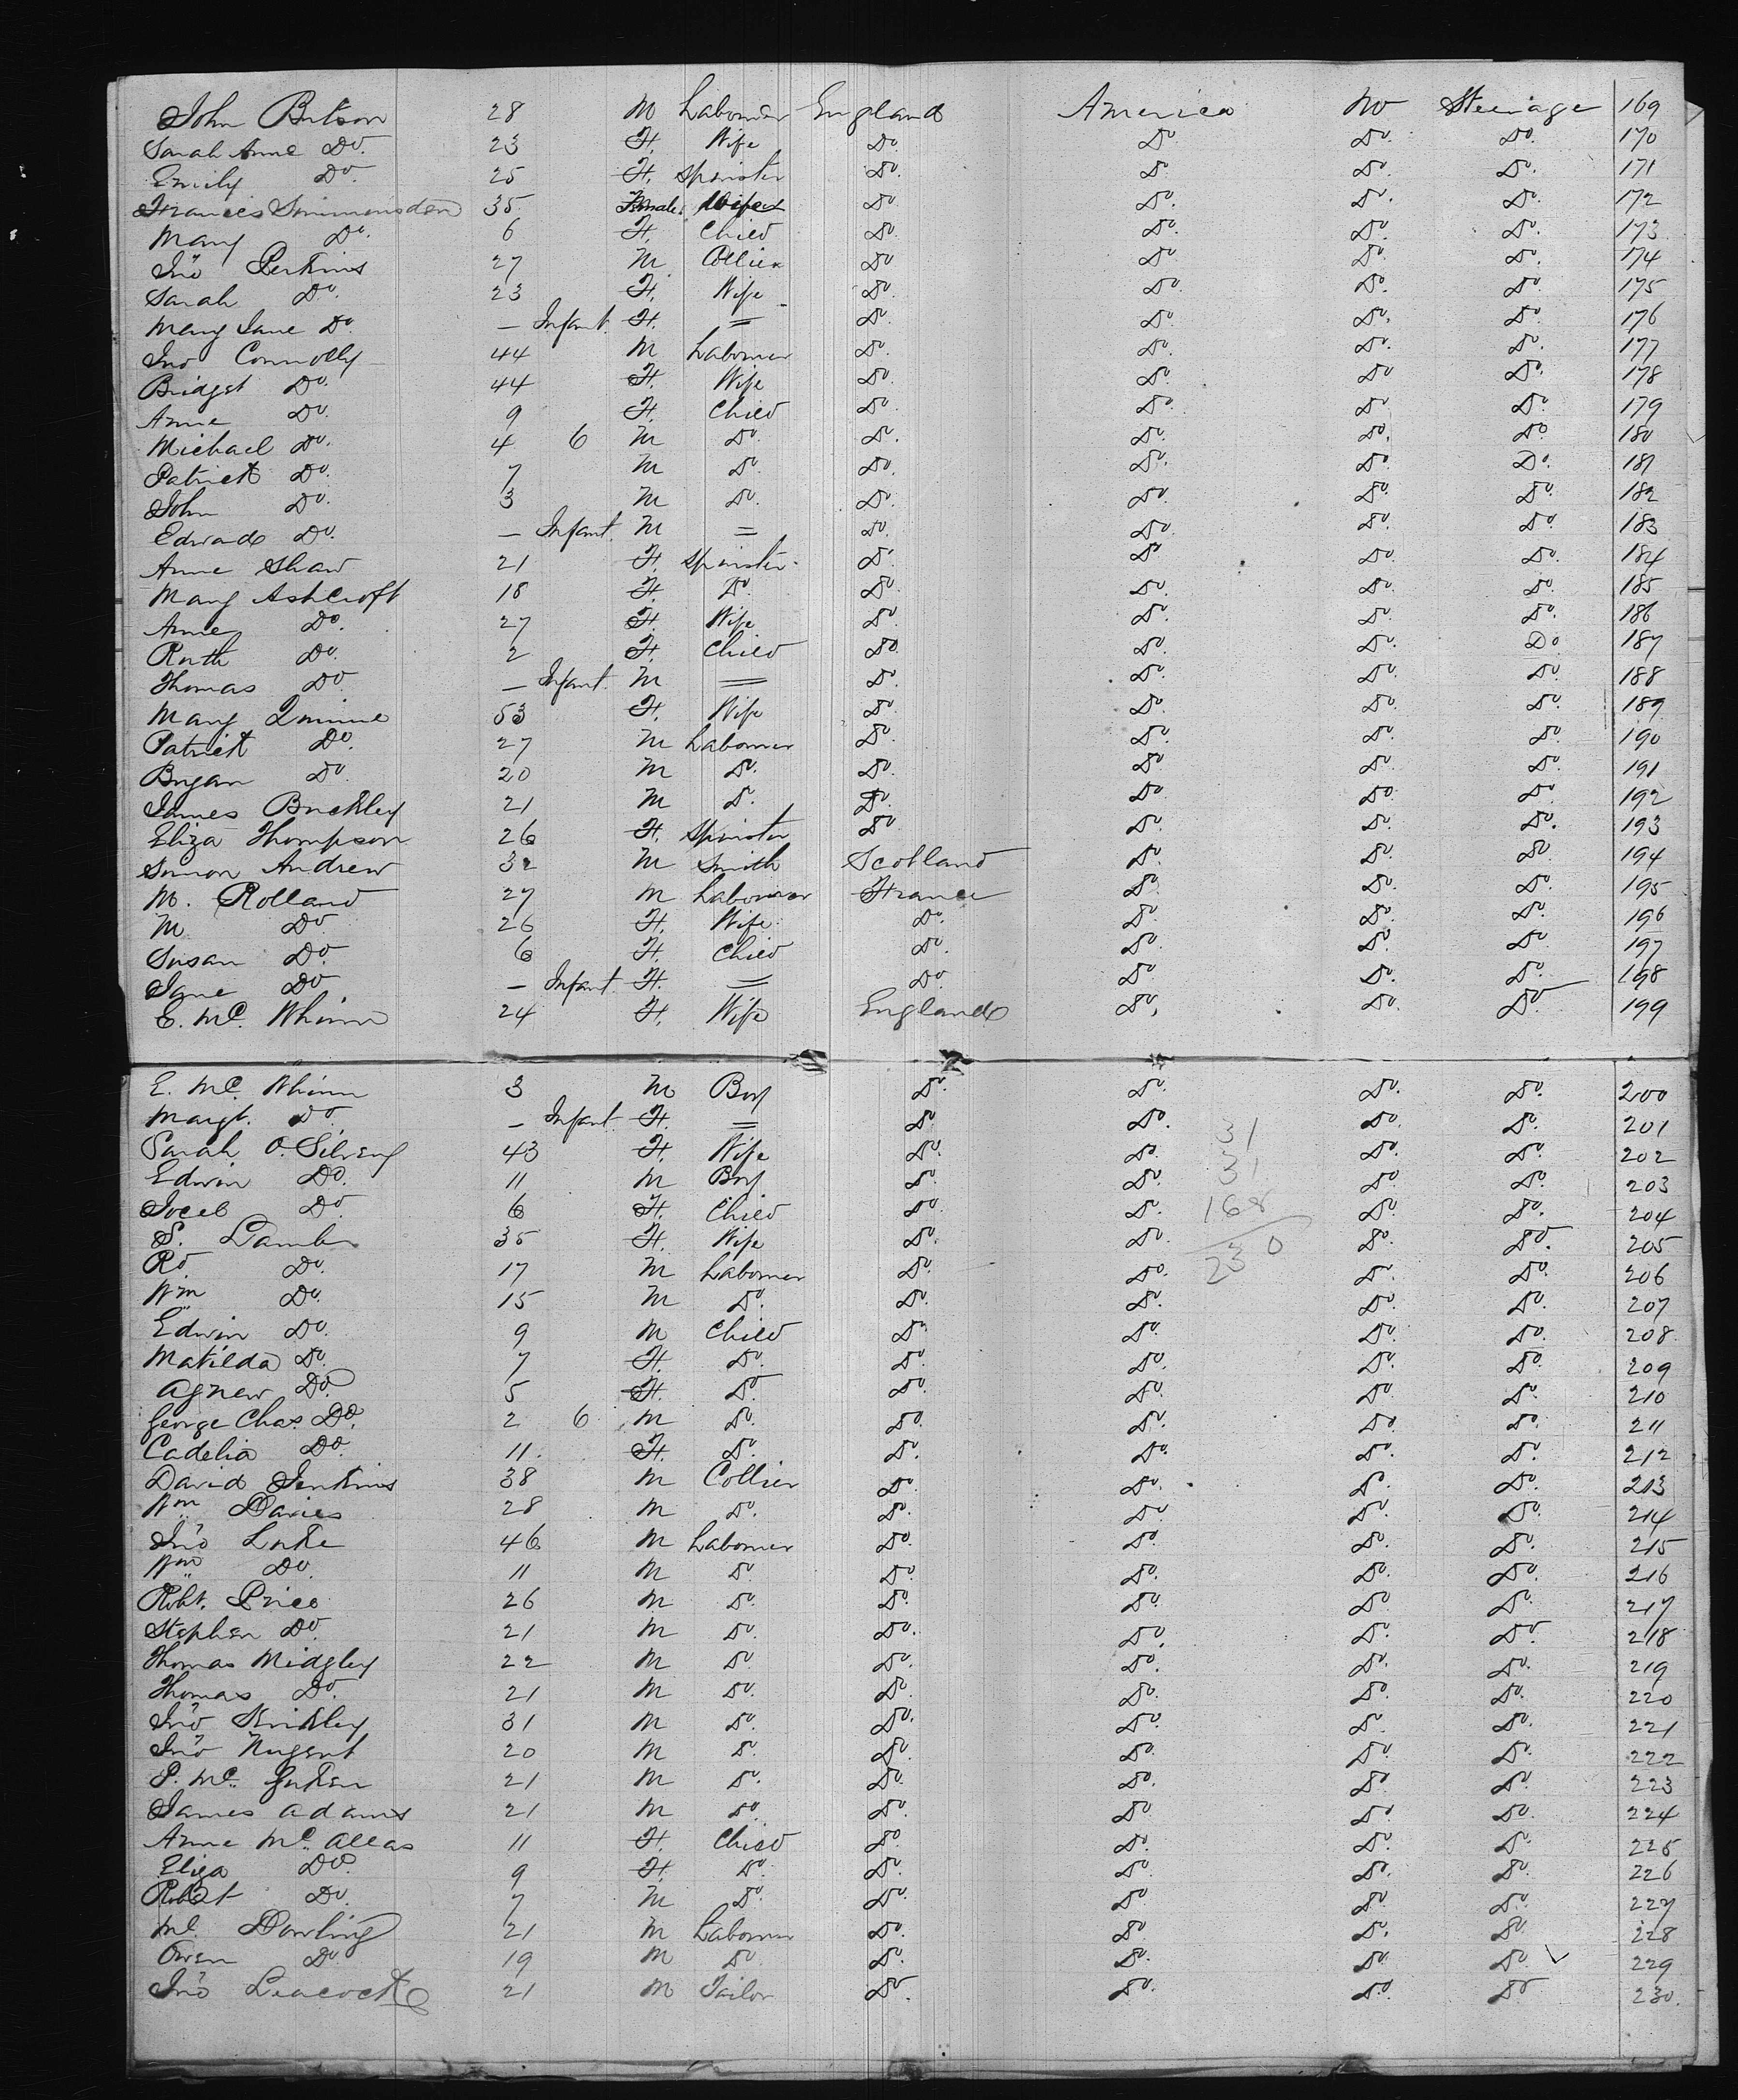 John Butson 28 M Labourer England America No Steerage 169
Sarah Anne Do. 23 F. Wife Do. Do. Do. Do. 170
Emily Do. 25 F. Spinster Do. Do. Do. Do. 171
Frances Simmonsden 35 Female. Wife Do. Do. Do. Do. 172
Mary Do. 6 F. Child Do. Do. Do. Do. 173
Jno Perkins 27 M Collier Do Do Do. Do. 174
Sarah Do. 23 F. Wife Do. Do. Do. Do. 175
Mary Jane Do. — Infant. F. = Do. Do. Do. Do. 176
Jno Connolly 44 M Labourer Do. Do. Do. Do. 177
Bridget Do. 44 F. Wife Do. Do. Do Do. 178
Anne Do. 9 F. Child Do. Do. Do Do. 179
Michael Do. 4 6 M Do. Do. Do. Do. Do 180
Patrick Do. 7 M Do. Do. Do. Do. Do. 181
John Do. 3 M Do. Do. Do. Do. Do. 182
Edward Do. — Infant. M = Do. Do. Do. Do. 183
Anne Shaw 21 F. Spinster Do. Do Do. Do. 184
Mary Ashcroft 18 F. Do. Do. Do. Do. Do. 185
Anne Do. 27 F. Wife Do. Do. Do. Do. 186
Ruth Do. 2 F. Child Do. Do. Do. Do. 187
Thomas Do. — Infant. M = Do. Do. Do. Do. 188
Mary Quinne 53 F. Wife Do. Do. Do. Do. 189
Patrick Do. 27 M Labourer Do. Do. Do. Do. 190
Bryan Do. 20 M Do. Do. Do Do. Do. 191
James Buckley 21 M Do. Do. Do Do. Do. 192
Eliza Thompson 26 F. Spinster Do Do. Do. Do. 193
Simon Andrew 32 M Smith Scotland Do. Do. Do 194
M. Rolland 27 M Labourer France Do. Do. Do. 195
M Do. 26 F. Wife Do. Do. Do. Do. 196
Susan Do. 6 F. Child Do. Do. Do. Do. 197
Jane Do — Infant. F. = Do. Do Do. Do. 198
E. Mc. Whinn 24 F. Wife England Do. Do. Do. 199
E. Mc. Whinn 3 M Boy Do. Do. Do. Do. 200
Margt. Do. — Infant. F. = Do Do. Do. Do. 201
31
Sarah O. Silvery 43 F. Wife Do. Do. Do. Do. 202
31
Edwin Do. 11 M Boy Do. Do. Do. Do. 203
168
Do. 6 F. Child Do. Do. Do. Do. 204
S. Lamb 35 F. Wife Do. Do. Do. Do. 205
230
Rd Do. 17 M Labourer Do. Do. Do. Do. 206
Wm Do. 15 M Do. Do. Do. Do. Do. 207
Edwin Do. 9 M Child Do. Do. Do. Do. 208
Matilda Do. 7 F. Do. Do. Do. Do. Do. 209
Agnew Do. 5 F. Do. Do. Do. Do. Do. 210
George Chas. Do. 2 6 M Do. Do. Do. Do. Do. 211
Cadelia Do. 11. F. Do. Do. Do. Do. Do. 212
David Jenkins 38 M Collier Do. Do. Do. Do. 213
Wm Davies 28 M Do. Do. Do. Do. Do. 214
Jno Luke 46 M Labourer Do. Do. Do. Do. 215
Wm Do. 11 M Do. Do. Do. Do. Do. 216
Robt. Price 26 M Do. Do. Do. Do. Do. 217
Stephen Do. 21 M Do. Do. Do. Do. Do. 218
Thomas Midgley 22 M Do. Do. Do. Do. Do. 219
Thomas Do. 21 M Do. Do. Do. Do. Do. 220
Jno 31 M Do. Do. Do. Do. Do. 221
Jno Nugent 20 M Do. Do. Do. Do. Do. 222
P. Mc. 21 M Do. Do. Do. Do. Do. 223
James Adams 21 M Do. Do. Do Do. Do. 224
Anne Mc. Allas 11 F. Child Do. Do. Do. Do. 225
Eliza Do. 9 F. Do. Do. Do. Do. Do. 226
Robert Do. 7 M Do. Do. Do Do. Do. 227
Ml. Dowling 21 M Labourer Do. Do Do. Do 228
Owen Do. 19 M Do. Do. Do. Do. Do. 229
Jno Leacock 21 M Tailor Do. Do. Do. Do 230.